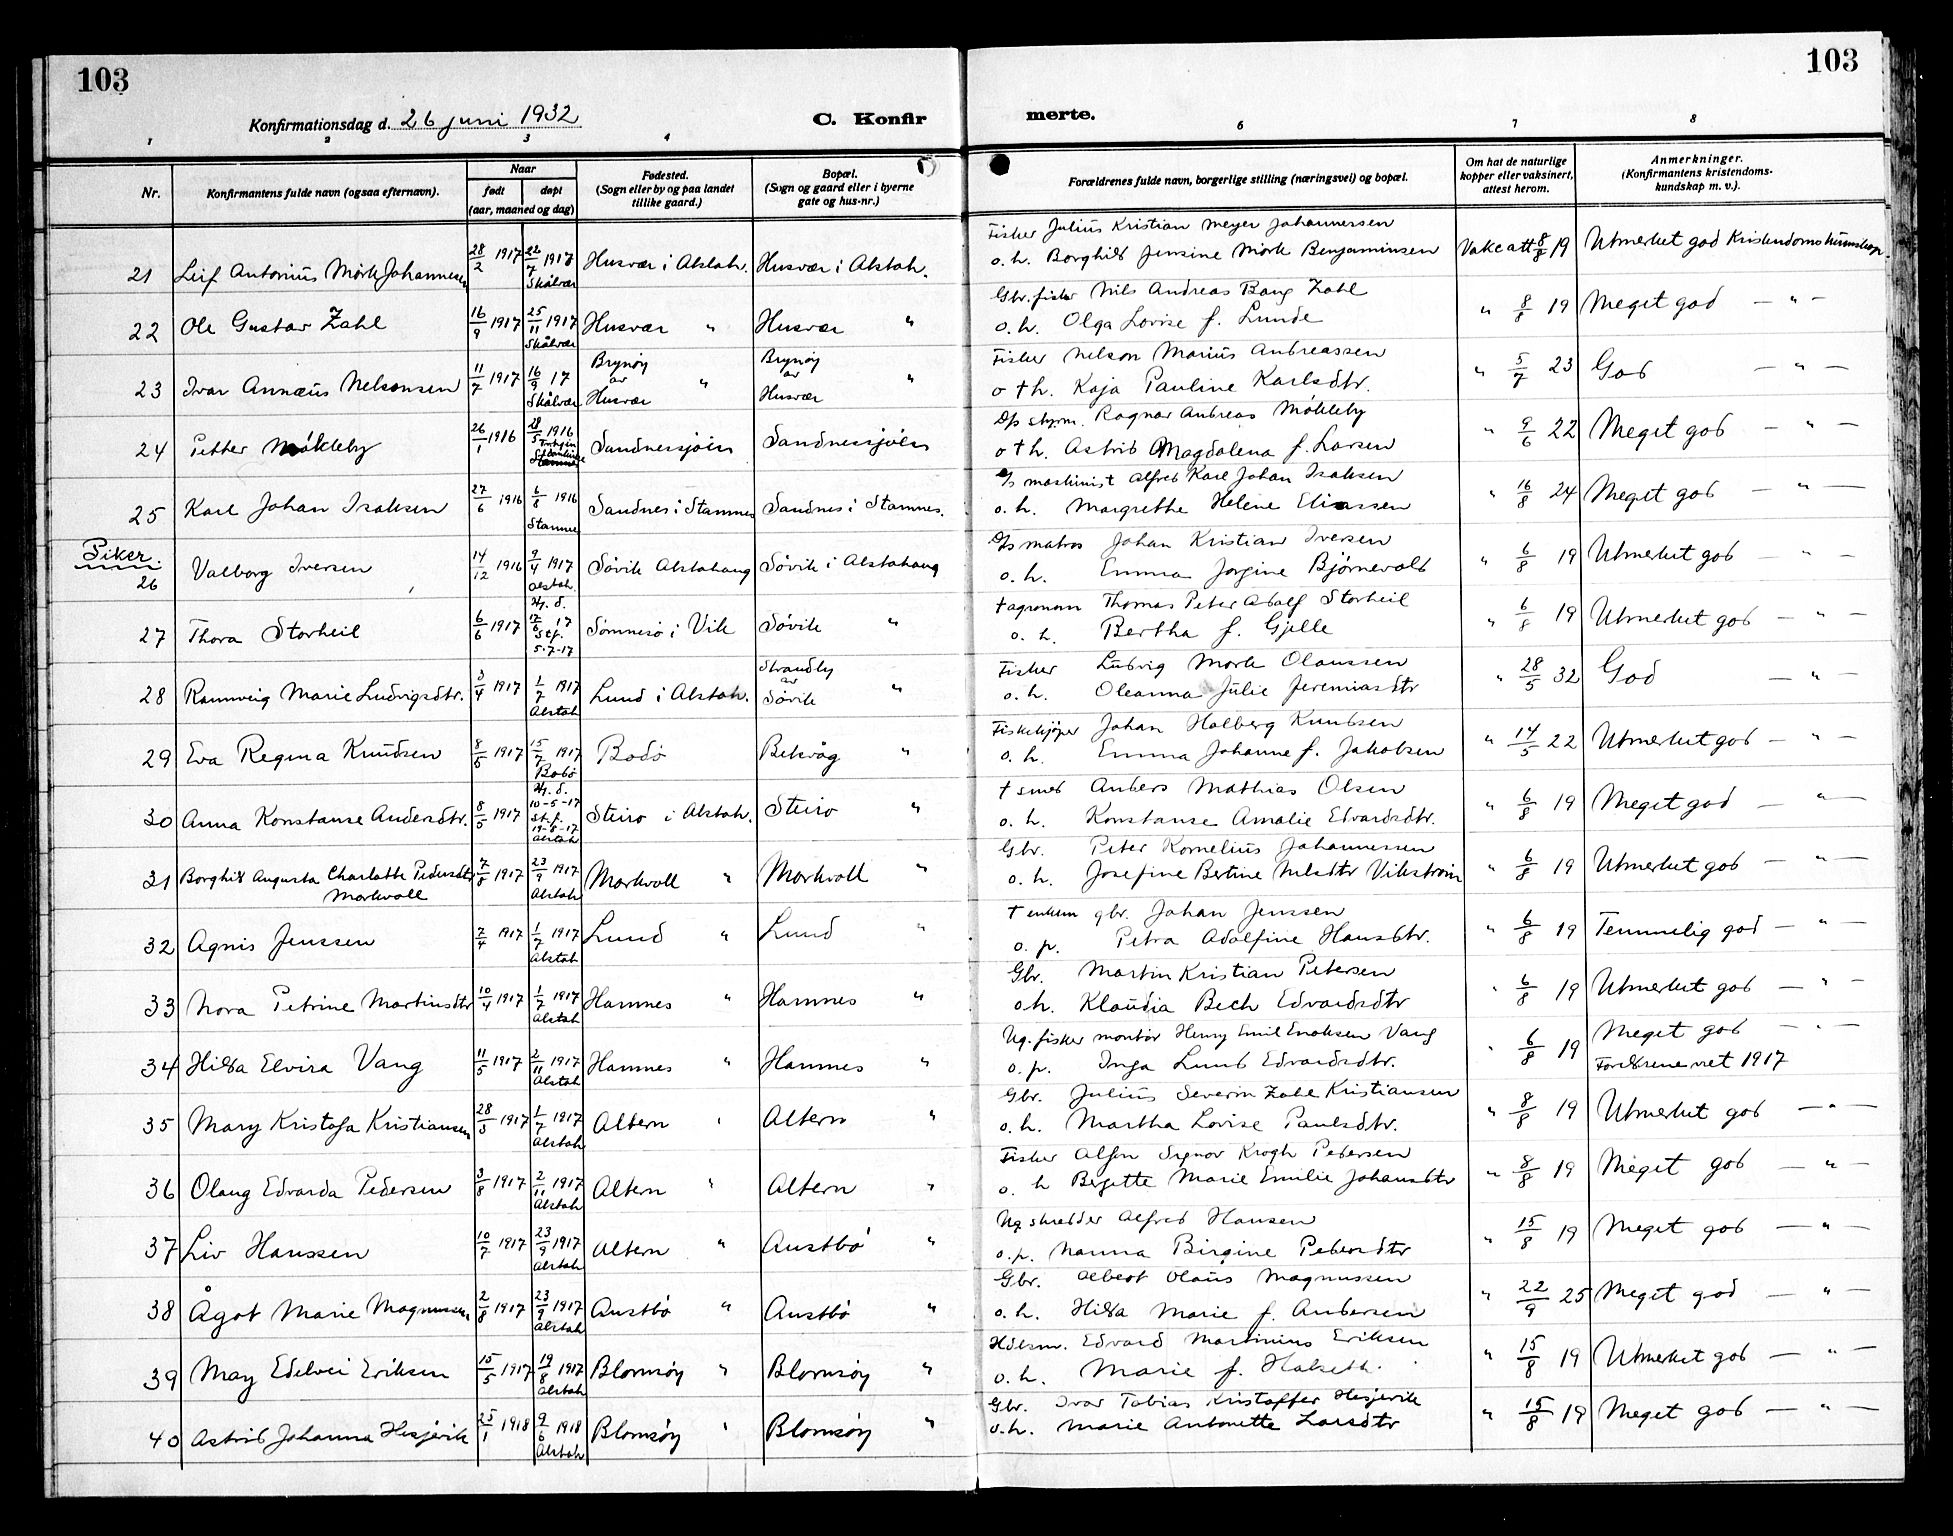 103
103
Konfirmationsdag d. 26 juni 1932
C. Konfir
merte.
1 2 3 4 6 7 8
Nr.
Konfirmantens fulde navn (ogsaa efternavn).
Naar
født
døpt
(aar, maaned og dag)
Fødested.
(Sogn eller by og paa landet
tillike gaard.)
Bopæl.
(Sogn og gaard eller i byerne
gate og hus-nr.)
Forældrenes fulde navn, borgerlige stilling (næringsvei) og bopæl.
Om hat de naturlige
kopper eller vaksinert,
attest herom.
Anmerkninger.
(Konfirmantens kristendoms-
kundskap m. v.).
Fisker Julius Kristian Meyer Johannessen
21 Leif Antonius Mørk Johannessen 28/2 1917 22/7 1917 Skålvær Husvær i Alstah. Husvær i Alstah. o. h. Borghild Jensine Mørk Benjaminsen Vakc att 8/8 19 Utmerket god Kristendomskunnskap
Gbr. fisker Nils Andreas Bang Zahl
22 Ole Gustav Zahl 16/9 1917 25/11 1917 Skålvær Husvær " Husvær " o. h. Olga Lovise f. Lunde " 8/8 19 Meget god — " —
Fisker Nelson Marius Andreassen
23 Ivar Annæus Nelsonsen 11/7 1917 16/9 17 Skålvær Brynøy av Husvær " Brynøy av Husvær " o † h. Kaja Pauline Karlsdtr. " 5/7 23 God — " —
D/s styrm. Ragnar Andreas Møkleby
24 Petter Møkleby 26/1 1916 28/5 1916 Sandnessjøen Sandnessjøen o † h. Astrid Magdalena f. Larsen " 9/6 22 Meget god — " —
D/s maskinist Alfred Karl Johan Isaksen
25 Karl Johan Isaksen 27/6 1916 6/8 1916 Stamnes Sandnes i Stamnes Sandnes i Stamnes. o. h. Margrethe Helene Eliassen " 16/8 24 Meget god — " —
Piker
D/s matros Johan Kristian Iversen
26 Valborg Iversen 14/12 1916 9/4 1917 Alstah. Søvik Alstahaug Søvik i Alstahaug o. h. Emma Jørgine Bjørnevold " 6/8 19 Utmerket god — " —
† agronom Thomas Peter Adolf Storheil
27 Thora Storheil 6/6 1917 Hj. d. 17/6 17 St.f. 5-7-17 Sømnesø i Vik Søvik " o. h. Bertha f. Gjelle " 6/8 19 Utmerket god — " —
Fisker Ludvig Mørk Olaussen
28 Rannveig Marie Ludvigsdtr. 3/4 1917 1/7 1917 Alstah Lund i Alstah. Strandby av Søvik " o. h. Oleanna Julie Jeremiasdtr " 28/5 32 God — " —
Fiskekjøper Johan Holberg Knudsen
29 Eva Regina Knudsen 8/5 1917 15/7 1917 Bodø Bodø Belvåg " o. h. Emma Johanne f. Jakobsen " 14/5 22 Utmerket god — " —
† smed Anders Mathias Olsen
30 Anna Konstanse Andersdtr. 8/5 1917 Hj. d. 10-5-17 St.f. 19-8-17 Alstah Steiro i Alstah. Steiro " o. h. Konstanse Amalie Edvardsdtr. " 6/8 19 Meget god — " —
Gbr. Peter Kornelius Johannessen
31 Borghild Augusta Charlotte Pedersdtr Markvoll 7/8 1917 23/9 1917 Alstah Markvoll " Markvoll " o. h. Josefine Bertine Nilsdtr Vikstrøm " 6/8 19 Utmerket god — " —
† enkem gbr. Johan Jenssen
32 Agnis Jenssen 7/4 1917 1/7 1917 Alstah Lund " Lund " o. p. Petra Adolfine Hansdtr. " 6/8 19 Temmelig god — " —
Gbr. Martin Kristian Petersen
33 Nora Petrine Martinsdtr 10/4 1917 1/7 1917 Alstah Hamnes " Hamnes " o. h. Klaudia Bech Edvardsdtr " 6/8 19 Utmerket god — " —
Ug. fisker montør Henry Emil Enoksen Vang
34 Hilda Elvira Vang 11/5 1917 2/11 1917 Alstah Hamnes " Hamnes " o. p. Inga Lund Edvardsdtr. " 6/8 19 Meget god — " —
Foreldrene viet 1917
Gbr. Julius Severin Zahl Kristiansen
35 Mary Kristofa Kristiansen 28/5 1917 1/7 1917 Alstah Altern " Altern " o. h. Martha Lovise Paulsdtr. " 8/8 19 Utmerket god — " —
Fisker Alfon Signor Krogh Pedersen
36 Olaug Edvarda Pedersen 3/8 1917 2/11 1917 Alstah Altern " Altern " o. h Bergitte Marie Emilie Johansdtr " 8/8 19 Meget god — " —
Ug skredder Alfred Hansen
37 Liv Hanssen 10/7 1917 23/9 1917 Alstah Altern " Austbø " o. p. Nanna Birgine Pedersdtr " 15/8 19 Meget god — " —
Gbr. Albert Olaus Magnussen
38 Ågot Marie Magnussen 2/8 1917 23/9 1917 Alstah Austbø " Austbø " o. h. Hilda Marie f. Andersen " 22/9 25 Meget god — " —
Hdlsm. Edvard Martinius Eriksen
39 May Edelvei Eriksen 15/5 1917 19/8 1917 Alstah Blomsøy " Blomsøy " o. h. Marie f. Halseth. " 15/8 19 Utmerket god — " —
Gbr. Ivar Tobias Kristoffer Hesjevik
40 Astrid Johanna Hesjevik 25/1 1918 9/6 1918 Alstah Blomsøy " Blomsøy " o. h. Marie Antonette Larsdtr " 15/8 19 Meget god — " —